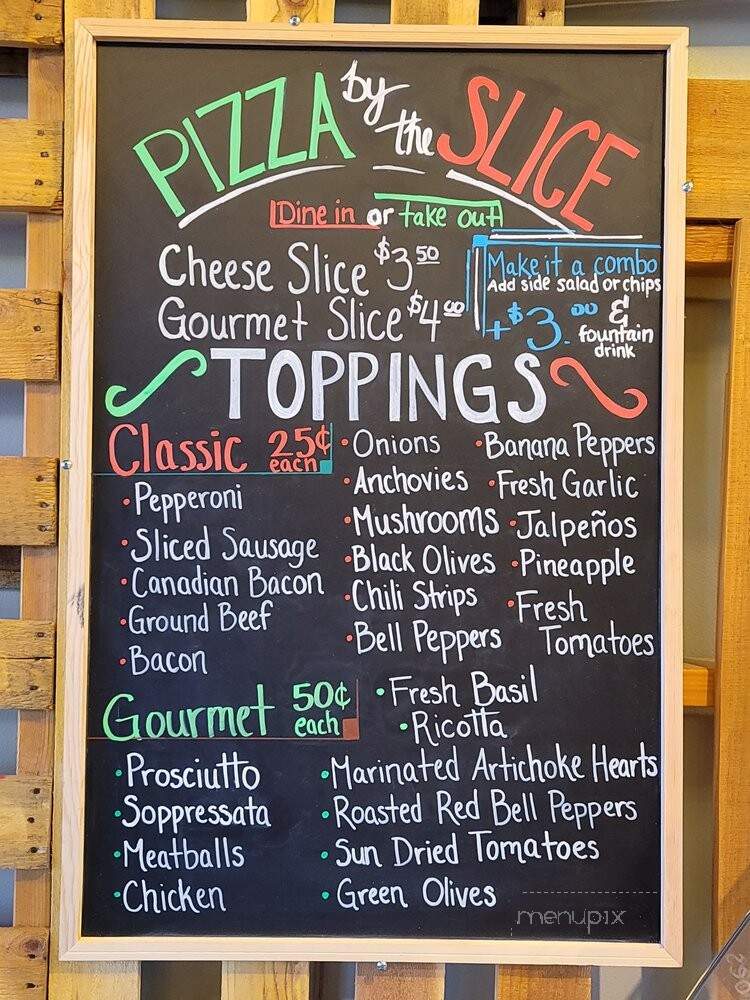 PIZZA by the SLICE
Dine in or take out
Cheese Slice $3.50
Gourmet Slice $4.00
Make it a combo
Add side salad or chips
+$3.00 &
fountain
drink
TOPPINGS
Classic 25¢
each
• Pepperoni
• Sliced Sausage
• Canadian Bacon
• Ground Beef
• Bacon
• Onions
• Anchovies
• Mushrooms
• Black Olives
• Chili Strips
• Bell Peppers
• Banana Peppers
• Fresh Garlic
• Jalpeños
• Pineapple
• Fresh
Tomatoes
Gourmet 50¢
each
• Prosciutto
• Soppressata
• Meatballs
• Chicken
• Fresh Basil
• Ricotta
• Marinated Artichoke Hearts
• Roasted Red Bell Peppers
• Sun Dried Tomatoes
• Green Olives
menupix